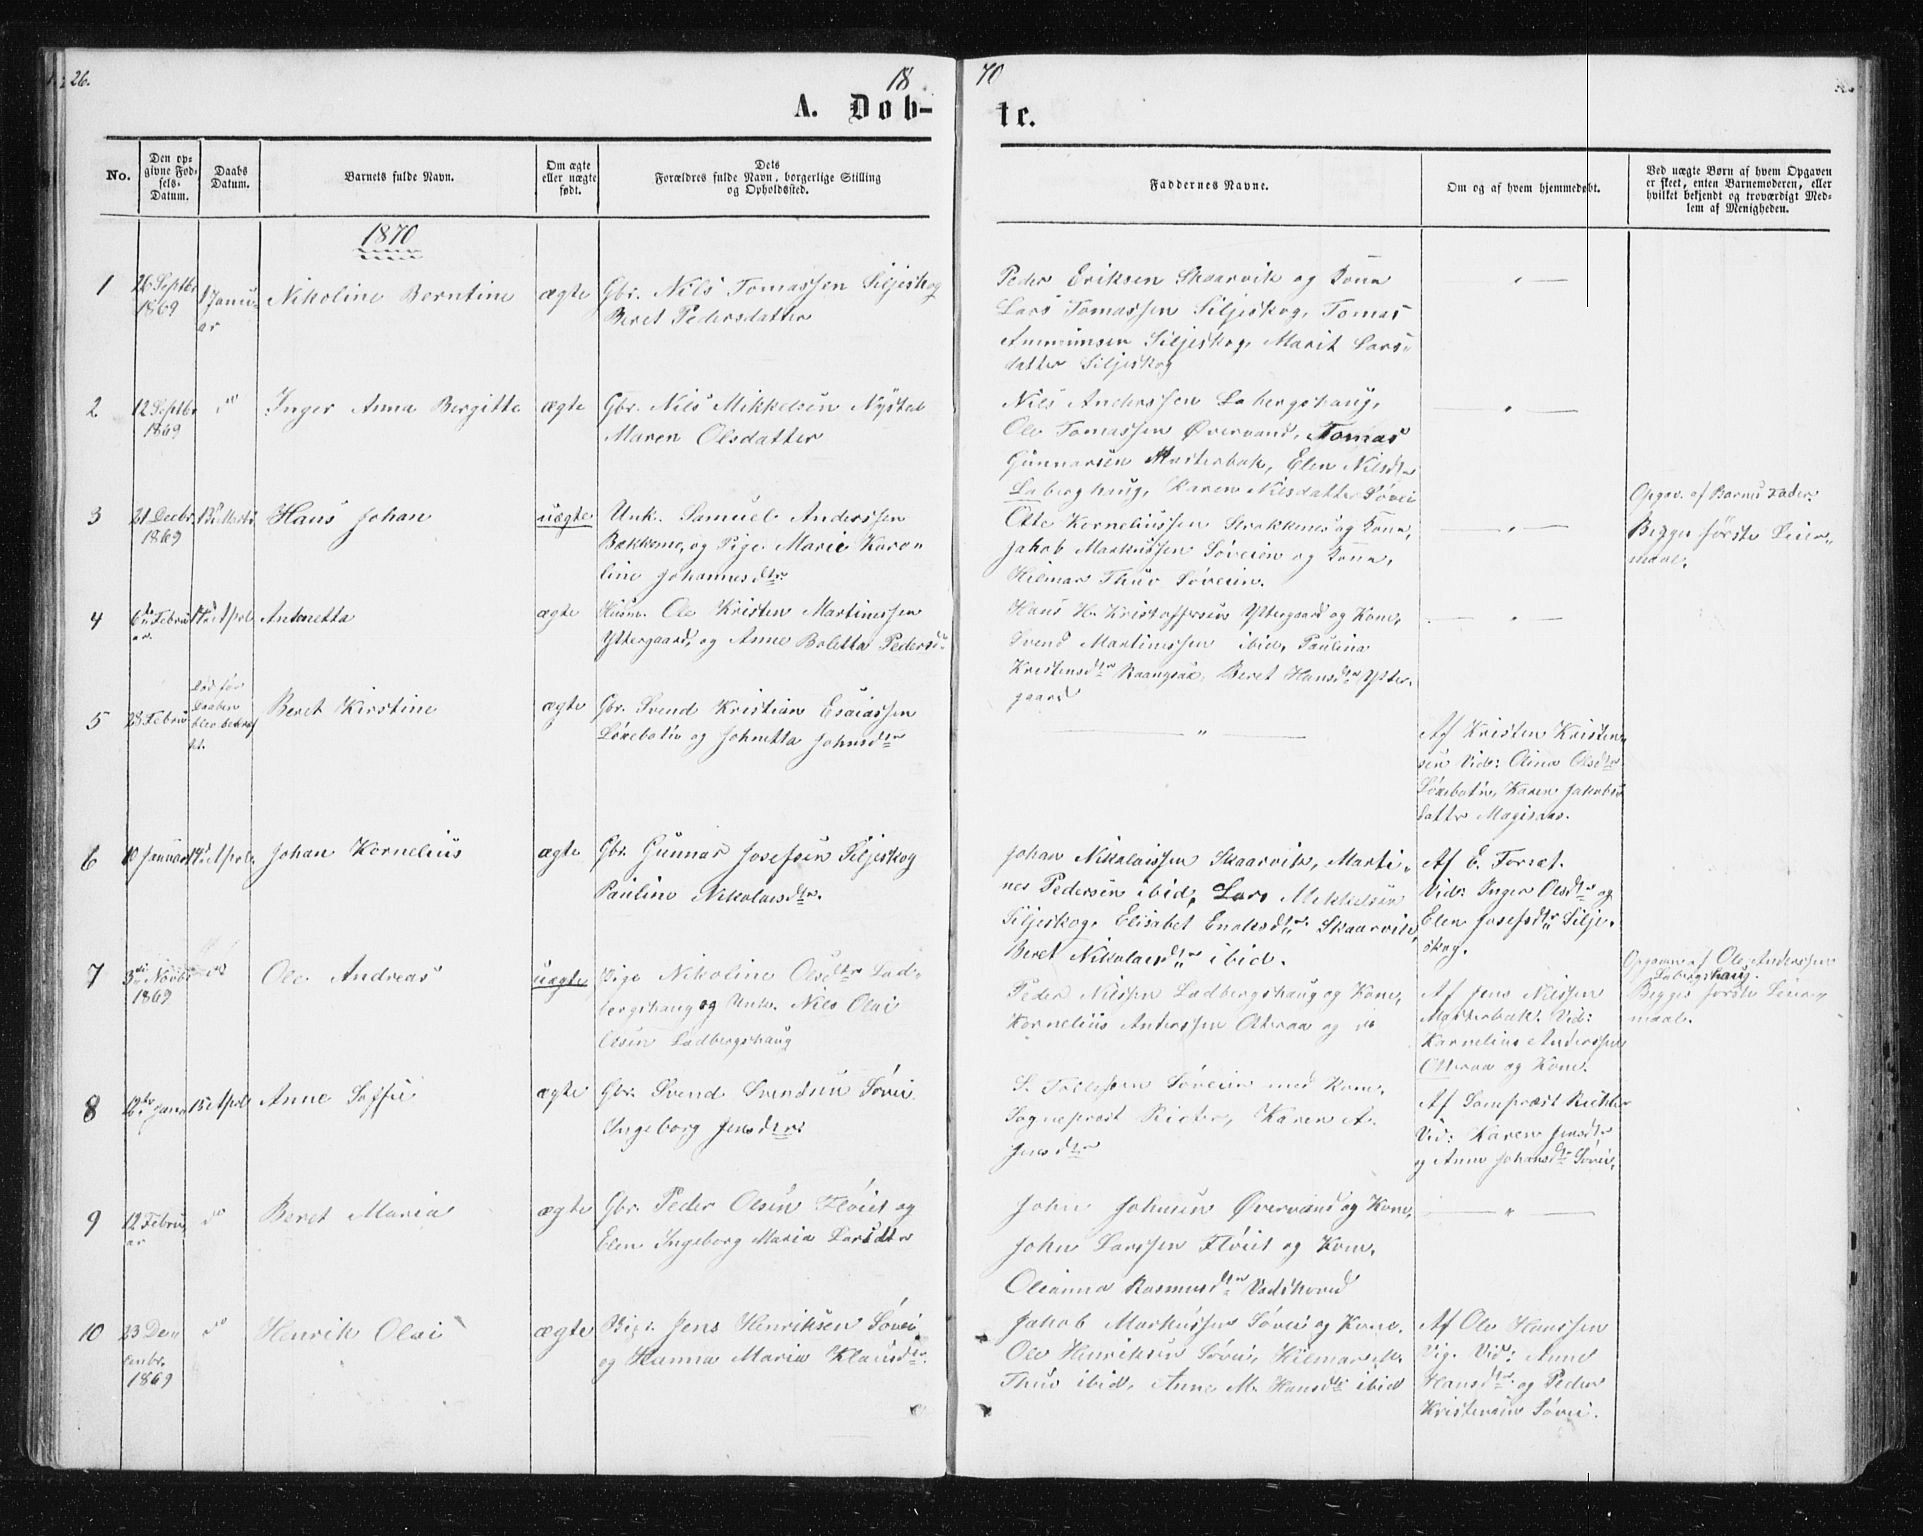 26.
18
70
A. Døb-
te.
No.
Den op-
givne Fød-
sels-
Datum.
Daabs
Datum.
Barnets fulde Navn.
Om ægte
eller uægte
født.
Dets
Forældres fulde Navn, borgerlige Stilling
og Opholdssted.
Faddernes Navne.
Om og af hvem hjemmedøbt.
Ved uægte Børn af hvem Opgaven
er skeet, enten Barnemoderen, eller
hvilket bekjendt og troværdigt Med-
lem af Menigheden.
1870
1
26 Septbr
1869
1 Janu-
ar
Nikoline Berntine
ægte
Gbr. Nils Tomassen Siljeskog
Beret Pedersdatter
Peder Eriksen Skaarvik og Kone
Lars Tomassen Siljeskog, Tomas
Siljeskog, Marit Lars-
datter Siljeskog
"
2
12 Septbr
1869
do
Inger Anna Bergitte
ægte
Gbr. Nils Mikkelsen Nystad
Maren Olsdatter
Nils Anderssen Labergshaug,
Ole Tomassen Øvervand, Tomas
Gunnarsen Masterbak, Elen Nilsdtr
Laberghaug, Karen Nilsdatter Søvei
"
3
21 Decbr
1869
13 Marts
Hans Johan
uægte
Unk. Samuel Anderssen
Bækkene, og Pige Marie Karo-
line Johannesdtr
Otte Korneliussen Strokkenes og Kone,
Jakob Markussen Søveien og Kone,
Hilmar Thuv Søveien.
"
Opgav. af Barnets Fader.
Begges første Leier-
maal.
4
6te Febru-
ar
14de April
Antonetta
ægte
Husm. Ole Kristen Martinussen
Yttergaard, og Anne Boletta Pedersd.
Hans H. Kristoffersen Yttergaard og Kone,
Svend Martinussen ibid, Paulina
Kristensdtr Raangsak, Beret Hansdtr Ytter-
gaard
"
5
28 Febru
død før
Daaben
blev bekræf
tet.
Beret Kirstine
ægte
Gbr. Svend Kristian Esaiassen
Løvebotn og Johnetta Johnsdtr
"
Af Kristen Kristen-
sen Vid: Olina Olsdtr
Løvebotn, Karen Jakobs-
datter Magisaas.
6
10 Januar
14de April
Johan Kornelius
ægte
Gbr. Gunnar Josefsen Siljeskog
Pauline Nikolaisdtr.
Johan Nikolaissen Skaarvik, Marti-
nes Pedersen ibid, Lars Mikkelsen
Siljeskog, Elisabet Enoksdtr. Skaarvik,
Beret Nikolaisdtr ibid.
Af E. Torset.
Vid: Inger Olsdtr og
Elen Josefsdtr Silje-
skog.
7
3die Novbr
1869
do
Ole Andreas
uægte
Pige Nikoline Olsdtr Lad-
bergshaug og Unk. Nils Olai
Olsen Ladbergshaug
Peder Nilssen Ladbergshaug og Kone,
Kornelius Anderssen Otteraa og do
Af Jens Nilssen
Masterbak. Vid:
Kornelius Anderssen
Otteraa og Kone.
Opgaven af Ole Anderssen
Labergshaug.
Begges første Leier-
maal.
8
12te Janu
15de April
Anne Soffie
ægte
Gbr. Svend Svendsen Søvei
Ingeborg Jensdtr.
S. Tollefsen Søveien med Kone,
Sogneprest Rieter, Karen A.
Jensdtr
Af Sognepræst Richter
Vid: Karen Jensdtr
og Anne Johansdtr Søvei.
9
12 Febru
ar
do
Beret Maria
ægte
Gbr. Peder Olsen Fløiet og
Elen Ingeborg Maria Larsdtr
John Johnsen Øvervand og Kone,
John Larssen Fløiet og Kone,
Olianna Rasmusdtr Vadshoved
"
10
23 De-
cembr.
1869
do
Henrik Olai
ægte
Jens Henriksen Søvei
og Hanna Maria Klausdtr.
Jakob Markussen Søvei og Kone,
Ole Henriksen Søvei, Hilmar M.
Thuv ibid, Anne M. Hansdtr ibid
Af Ole Hanssen
Vig. Vid: Anne
Hansdtr og Peder
Kristensen Søvei.